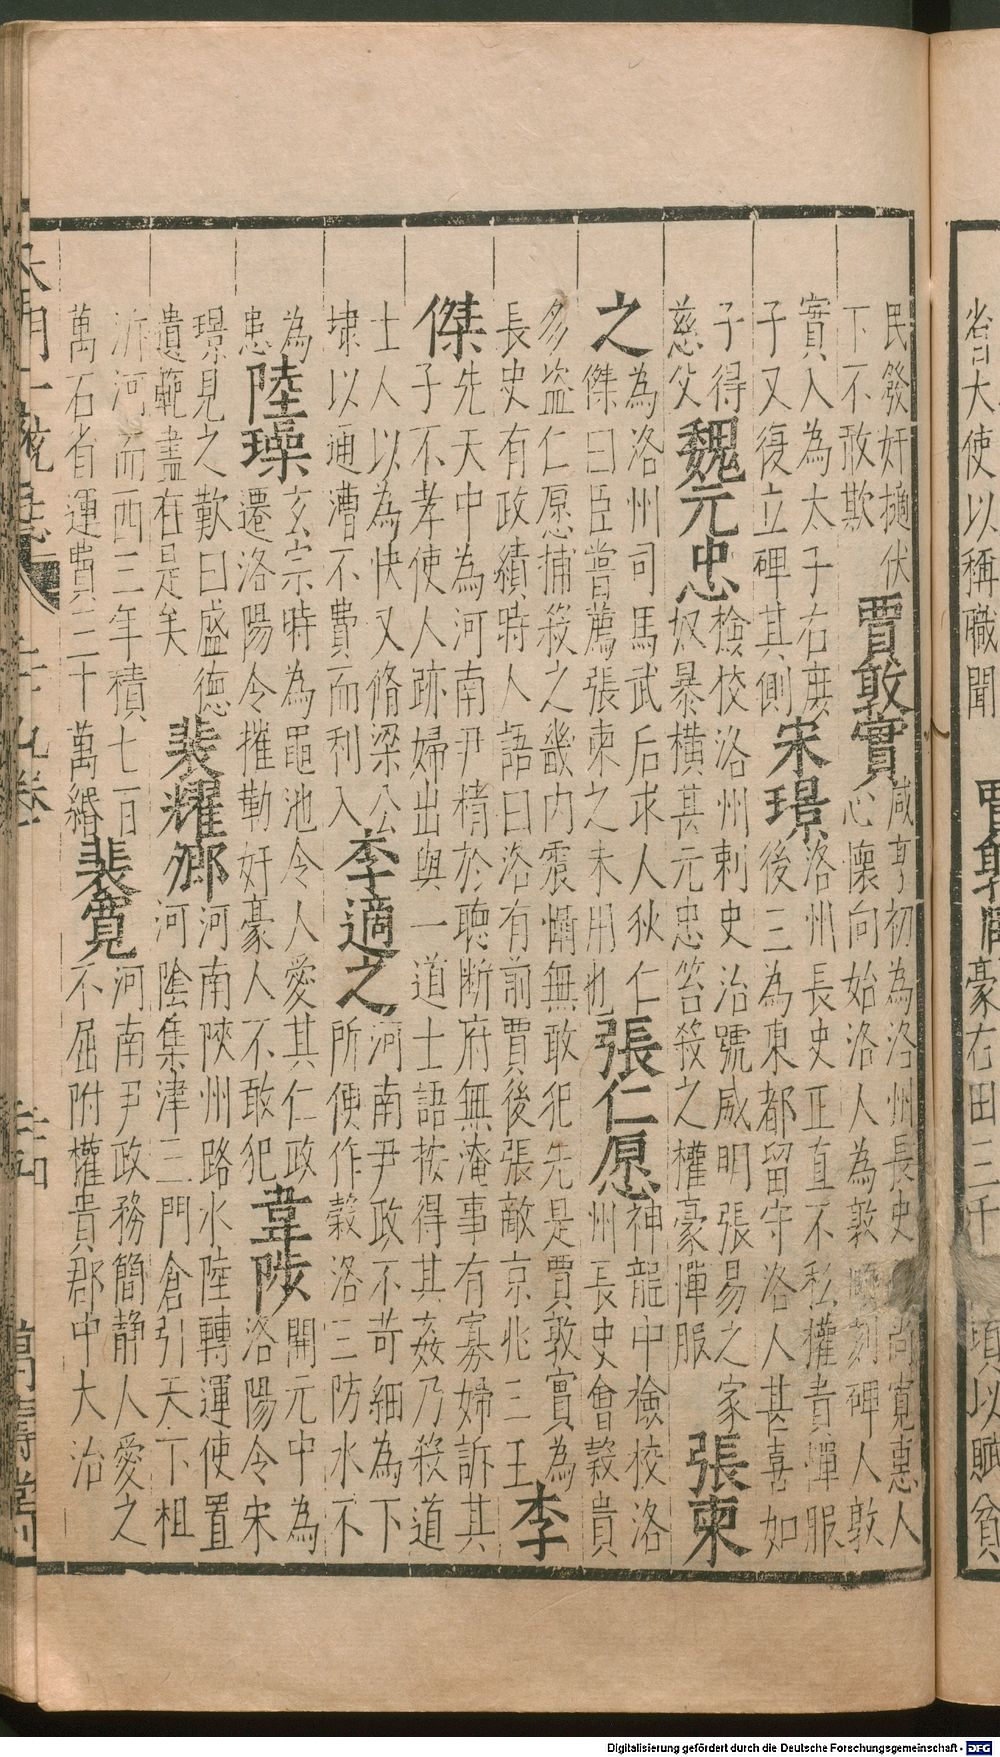 省大使以稱職聞
豪右田三千
頃以賦貧
民發奸擿伏下不敢欺賈敦實咸亨初為洛州長史尚寬惠人心懷向始洛人為敦刻碑人敦
實入為太子右庶子又復立碑其側宋璟洛州長史正直不私權貴憚服後三為東都留守洛人甚喜如
子得慈父魏元忠檢校洛州刺史治號威明張易之家奴暴橫甚元忠笞殺之權豪憚服張柬
之為洛州司馬武后求人狄仁傑曰臣嘗薦張柬之未用也張仁愿神龍中檢校洛州長史會穀貴
多盜仁愿捕殺之畿內震懾無敢犯先是賈敦實為長史有政績時人語曰洛有前賈後張敵京兆三王李
傑先天中為河南尹精於聽斷府無淹事有寡婦訴其子不孝使人跡婦出與一道士語按得其姦乃殺道
士人以為快又脩梁公埭以通漕不費而利入李適之河南尹政不苛細為下所便作穀洛三防水不
為患陸璪玄宗時為黽池令人愛其仁政遷洛陽令摧勒奸豪人不敢犯韋陟開元中為洛陽令宋
璟見之歎曰盛德遺範盡在是矣裴耀卿河南陝州路水陸轉運使置河陰集津三門倉引天下租
泝河而西三年積七百萬石省運費三十萬緡裴寬河南尹政務簡靜人愛之不屈附權貴郡中大治
大明一統志 二十九卷 二十四 萬壽堂刊
Digitalisierung gefördert durch die Deutsche Forschungsgemeinschaft - DFG